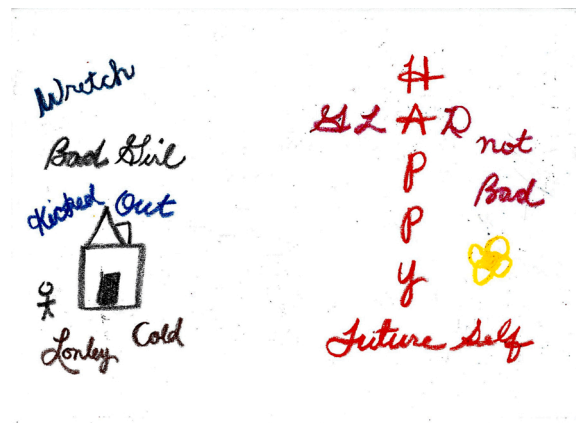 Wretch
Bad Girl
Kicked Out
Lonley Cold
H
GLAD
P
P
Y
not
Bad
Future Self